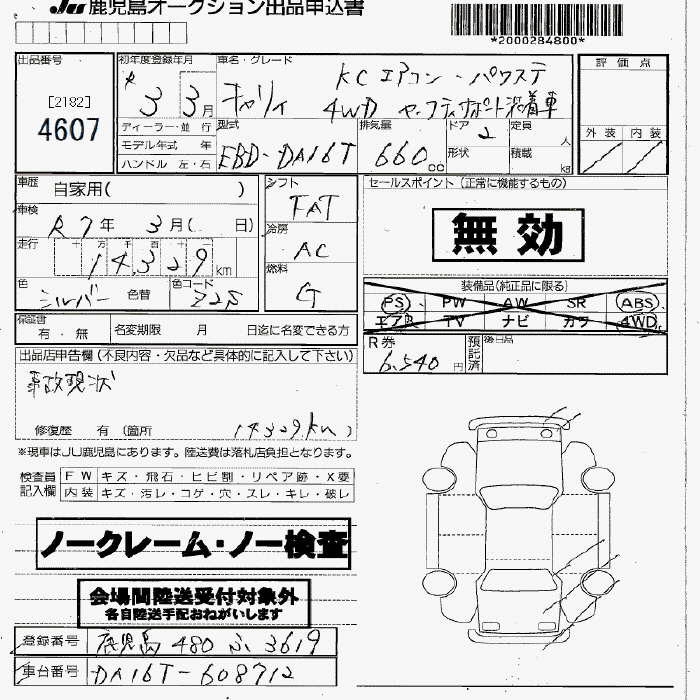 JU 鹿児島オークション出品申込書
*2000284800*
出品番号
[2182]
4607
初年度登録年月
R 3 3月
車名・グレード
KCエアコン・パワステ
キャリィ 4WD セーフティサポート装着車
評価点
外装 内装
ディーラー・並行
モデル年式 年
ハンドル 左・右
型式
EBD-DA16T
排気量
660cc
ドア 2
形状
定員 人
積載 kg
車歴 自家用( )
車検 R7年 3月( 日)
走行 十 万 千 百 十 一
14,329km
色 シルバー 色替 色コード Z2S
シフト
FAT
冷房
AC
燃料
G
セールスポイント (正常に機能するもの)
無効
装備品(純正品に限る)
PS PW AW SR ABS
エアB TV ナビ カワ 4WD
保証書 有・無 名変期限 月 日迄に名変できる方
R券 6,540円
預託済
後日品
出品店申告欄(不良内容・欠品など具体的に記入して下さい)
事故現状
修復歴 有 (箇所 14329km )
※現車はJU鹿児島にあります。陸送費は落札店負担となります。
検査員記入欄
FW キズ・飛石・ヒビ割・リペア跡・X要
内装 キズ・汚レ・コゲ・穴・スレ・キレ・破レ
ノークレーム・ノー検査
会場間陸送受付対象外
各自陸送手配おねがいします
登録番号 鹿児島 480 ふ 3619
車台番号 DA16T-608712